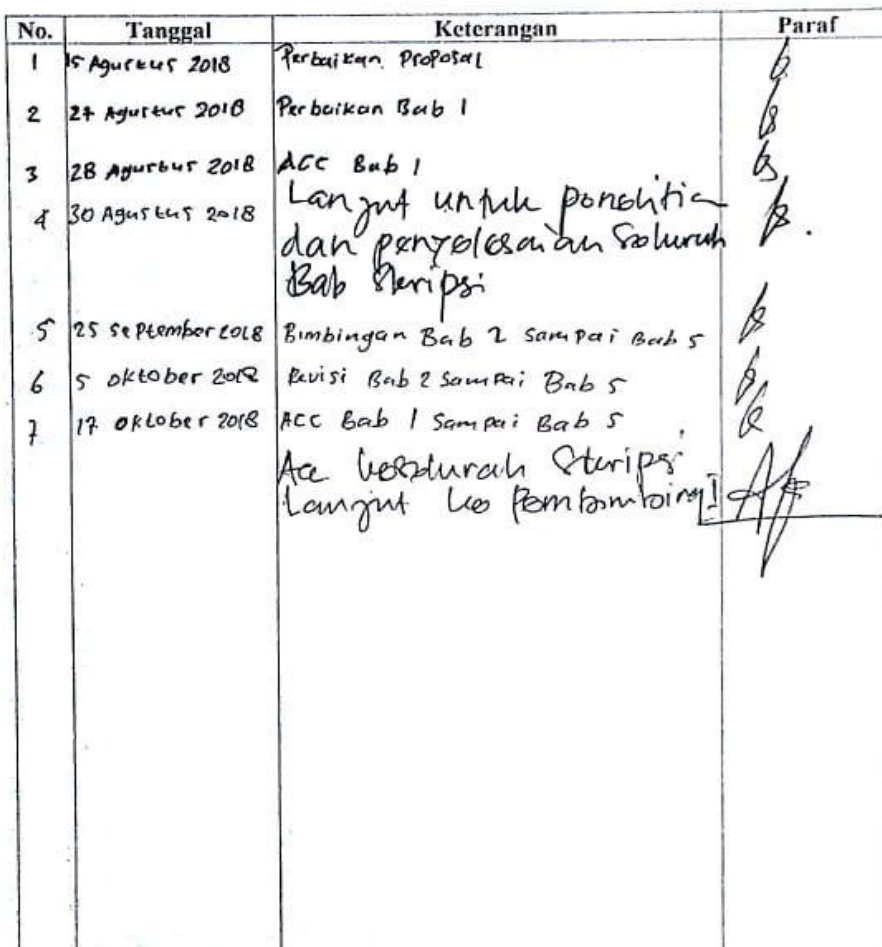 No. Tanggal Keterangan Paraf
1 15 Agustus 2018 Perbaikan Proposal
2 27 Agustus 2018 Perbaikan Bab 1
3 28 Agustus 2018 ACC Bab 1
4 30 Agustus 2018 Lanjut untuk penelitia
dan penyelesaian Seluruh
Bab Skripsi
5 25 September 2018 Bimbingan Bab 2 Sampai Bab 5
6 5 oktober 2018 Revisi Bab 2 Sampai Bab 5
7 17 oktober 2018 ACC Bab 1 Sampai Bab 5
Acc keseluruah Skripsi
Lanjut ke Pembimbing I